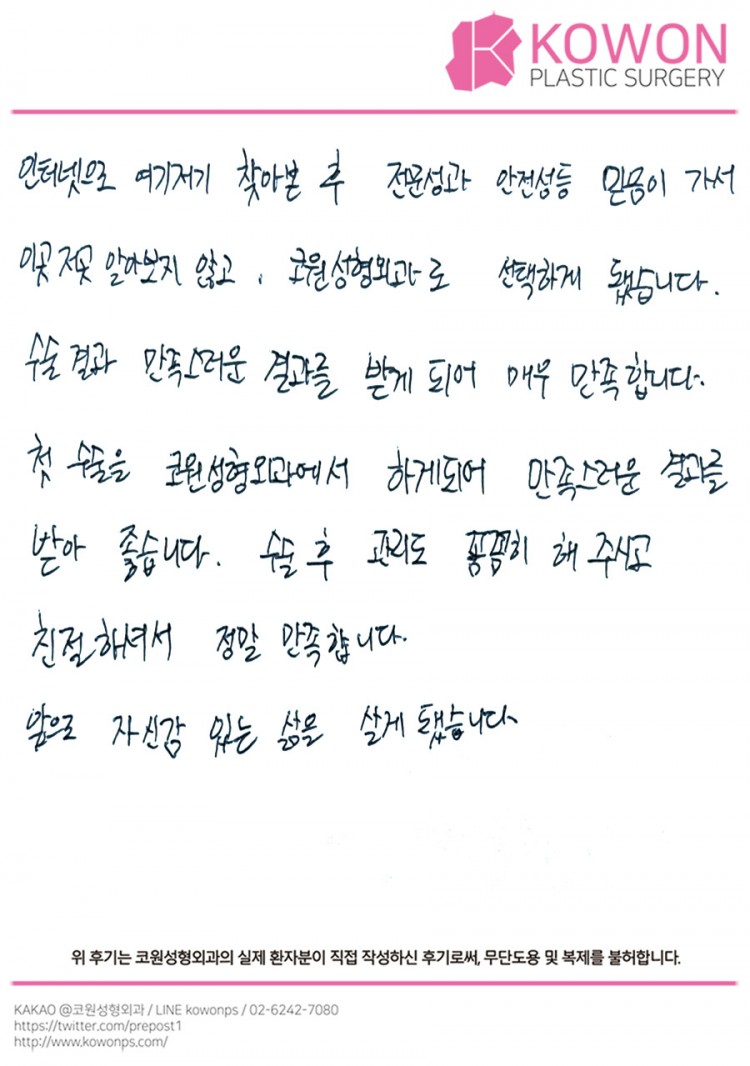 KOWON
PLASTIC SURGERY
인터넷으로 여기저기 찾아본 후 전문성과 안전성등 믿음이 가서
이곳 저곳 알아보지 않고, 코원성형외과로 선택하게 됐습니다.
수술 결과 만족스러운 결과를 받게 되어 매우 만족합니다.
첫 수술을 코원성형외과에서 하게되어 만족스러운 결과를
받아 좋습니다. 수술 후 관리도 꼼꼼히 해 주시고
친절하셔서 정말 만족합니다.
앞으로 자신감 있는 삶을 살게 됐습니다.
위 후기는 코원성형외과의 실제 환자분이 직접 작성하신 후기로써, 무단도용 및 복제를 불허합니다.
KAKAO @코원성형외과 / LINE kowonps / 02-6242-7080
https://twitter.com/prepost1
http://www.kowonps.com/